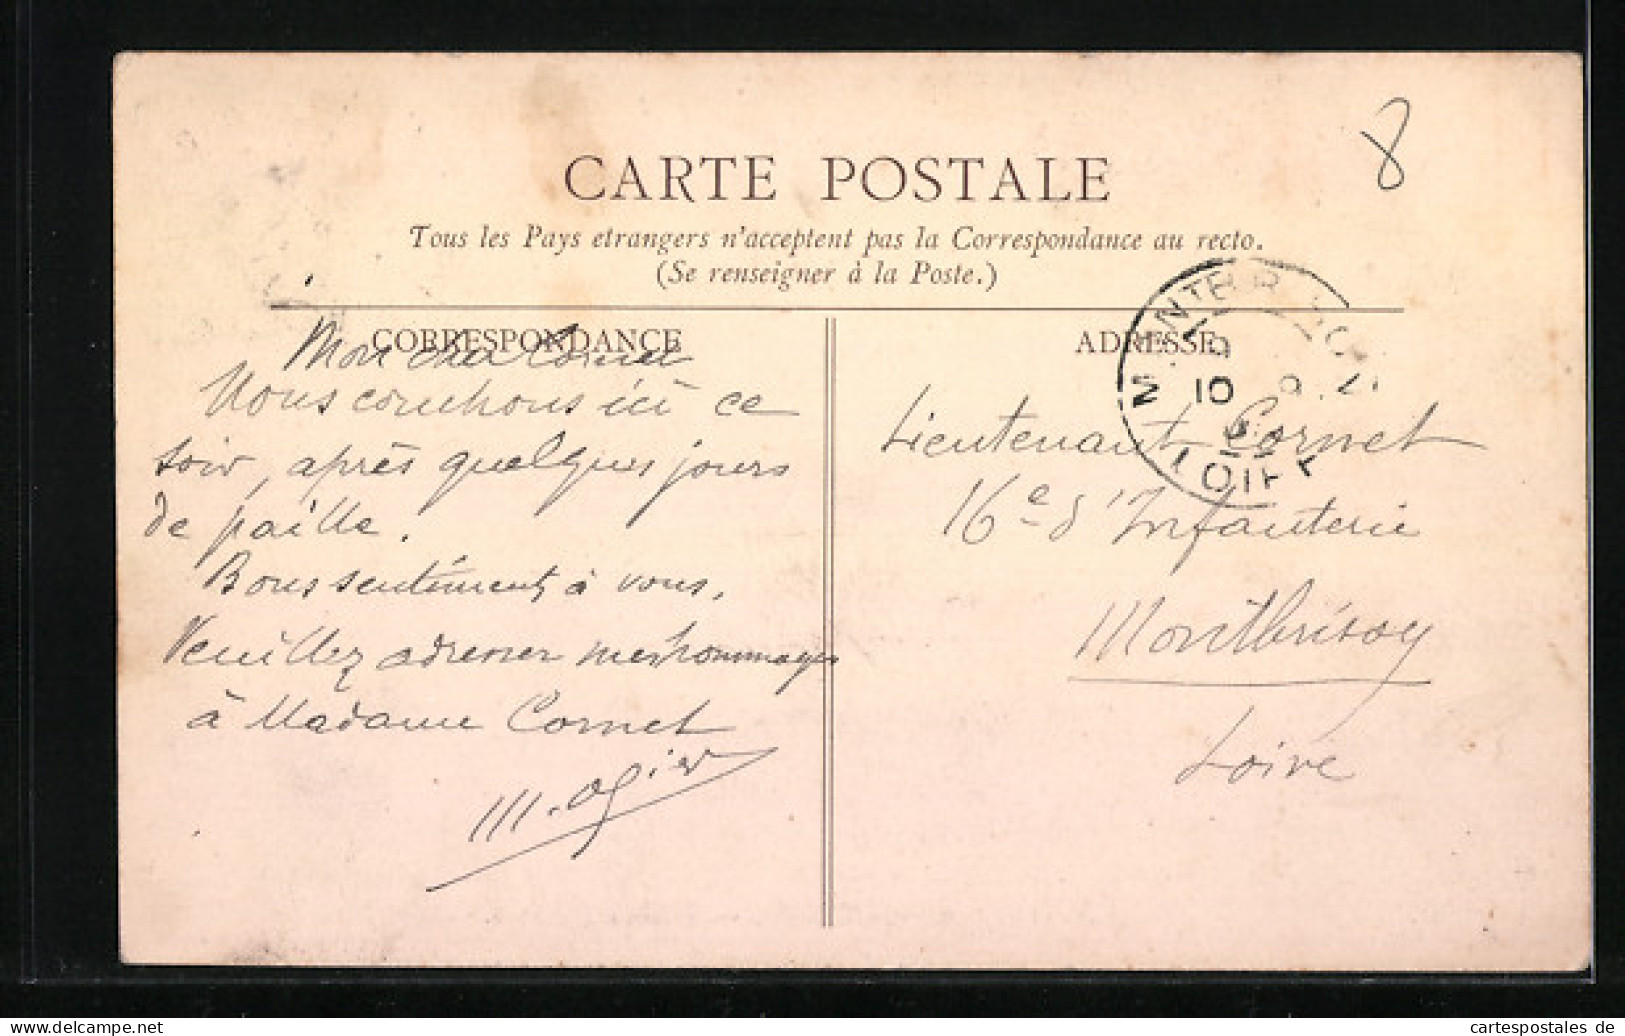 8
CARTE POSTALE
Tous les Pays etrangers n'acceptent pas la Correspondance au recto.
(Se renseigner à la Poste.)
CORRESPONDANCE
Mon cher Cornet
Nous couchons ici ce
soir, après quelques jours
de paille.
Bons sentiments à vous.
Veuillez adresser mes hommages
à Madame Cornet
M. Ogier
ADRESSE
Lieutenant Cornet
16e d'Infanterie
Montbrison
Loire
10
LOIRE
cartespostales de